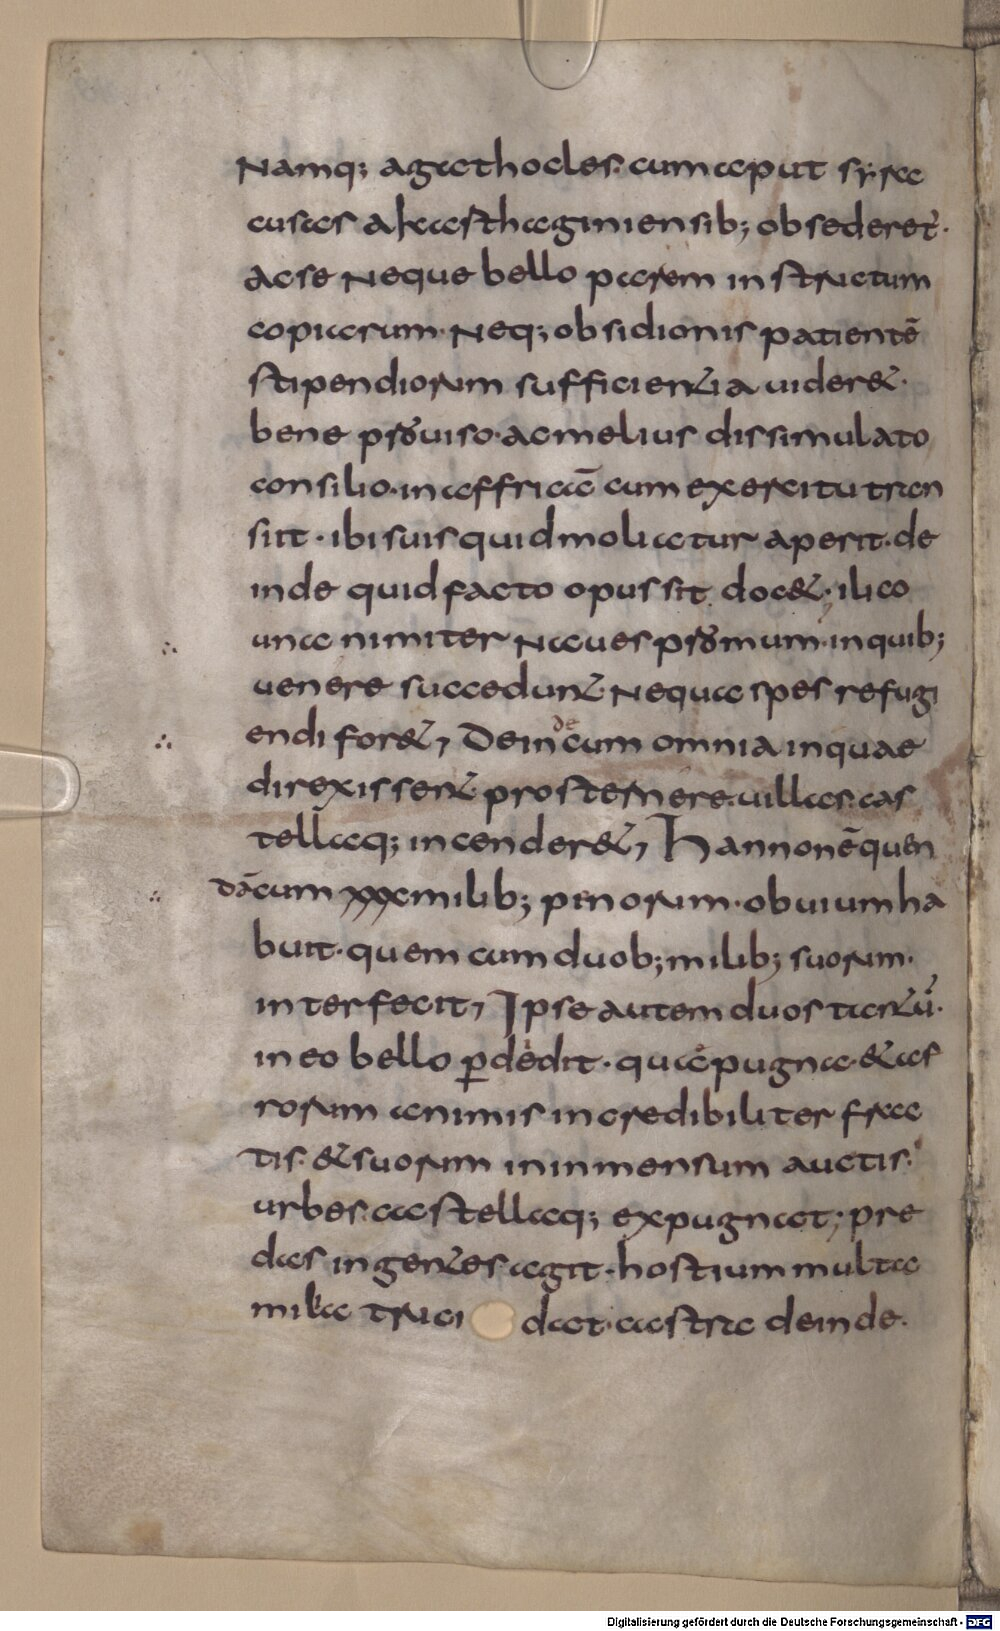 Namq; agathocles. cum aput syra
cusas a karthaginiensib; obsederet̉.
acse neque bello parem instructum
copiarum. neq; obsidionis patientē
stipendiorum sufficientia uider&.
bene prouiso. ac melius dissimulato
consilio. in affricā cum exercitu tran
siit. ibi suis quid moliatur aperit. de
inde quid facto opus sit doc&. ilico
unanimiter naues promum. in quib;
uenere succedunt. nequa spes refugi
endi for&, Dein de cum omnia in quae
direxissent. prosternere. uillas. cas
tellaq; incender&, Hannonē quen
dā cum xxx milib; penorum. obuium ha
buit. quem cum duob; milib; suorum.
interfecit, Ipse autem duos tantū.
in eo bello p̲dedit. qua pugna. & af
rorum animis incredibiliter frac
tis. & suorum in inmensum auctis.
urbes. castellaq; expugnat; pre
das ingentes agit. hostium multa
milia truci dat. castra deinde.
Digitalisierung gefördert durch die Deutsche Forschungsgemeinschaft - DFG